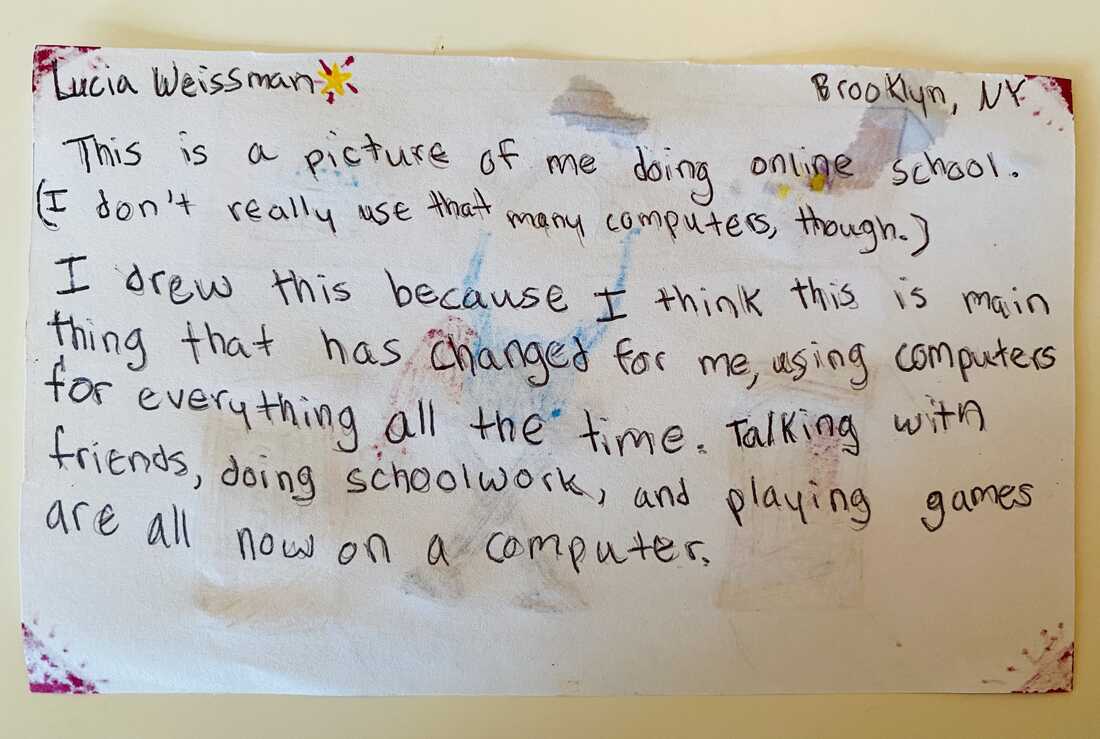 Lucia Weissman Brooklyn, NY
This is a picture of me doing online school.
(I don't really use that many computers, though.)
I drew this because I think this is main
thing that has changed for me, using computers
for everything all the time. Talking with
friends, doing schoolwork, and playing games
are all now on a computer.